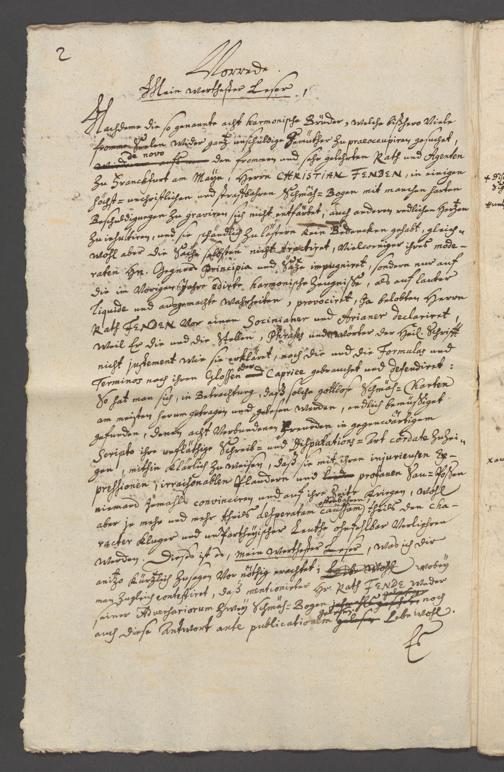 2
Vorrede.
Mein werthester Leser,
Nachdeme die so genannte acht harmonische Brüder, welche bißhero Viele
fromme Seelen wider ganz unschuldige Gemüther zu praeoccupiren gesuchet,
de novo den frommen und sehr gelehrten Rath und Agenten
Zu Franckfurt am Mayn, Herrn CHRISTIAN FENDEN, in einigen
höchst-unchristlichen und straffbahren Schmäh-Bogen mit manchen harten
Beschuldigungen Zu graviren sich nicht entfärbet, auch anderen redlichen Hertzen
Zu insultiren, und sie schändlich Zu lästern kein Bedencken gehabt, gleich-
wohl aber die Sache selbsten nicht tractiret, Vielweniger ihres mode-
raten Hn. Gegners Principia und Säze impugniret, sondern nur auf
die im Vorigen Jahre edirte harmonische Zeugnisse, als auf lauter
liquide und ausgemachte Wahrheiten, provociret, Ja belobten Herrn
Rath FENDEN Vor einen Socinianer und Arianer declariret,
Weil Er die und die Stellen, Phrases und Wörter der Heil. Schrifft
nicht justement wie sie erkläret, noch die und die Formulas und
Terminos nach ihren Glossen und Caprice gebrauchet und defendiret:
So hat man sich, in Betrachtung, daß solche gottlose Schmäh-Karten
am meisten herum getragen und gelesen werden, endlich bemüßiget
gefunden, denen acht Verbundenen Freunden in gegenwärtigem
Scripto ihre unfläthige Schreib- und Disputations-Art cordate Zu Zei-
gen, mithin klärlich Zu weisen, daß sie mit ihren injurieusen Ex-
pressionen, irraisonablen Plaudern und profanen Sau-Possen
niemand jemahls convinciren und auf ihre Seite kriegen, wohl
aber je mehr und mehr theils desperatam causam, theils den Cha-
racter kluger und unpartheyischer Leuthe ohnfehlbar Verliehren
werden. Dieses ist es, mein werthester Leser, was ich dir
anitzo kürtzlich Zu sagen Vor nöthig erachtet; wobey
man Zugleich contestiret, daß mentionirter Hr. Rath FENDE weder
seiner Adversariorum Zwey Schmäh-Bogen noch
auch diese Antwort ante publicationem gelesen. Lebe wohl.